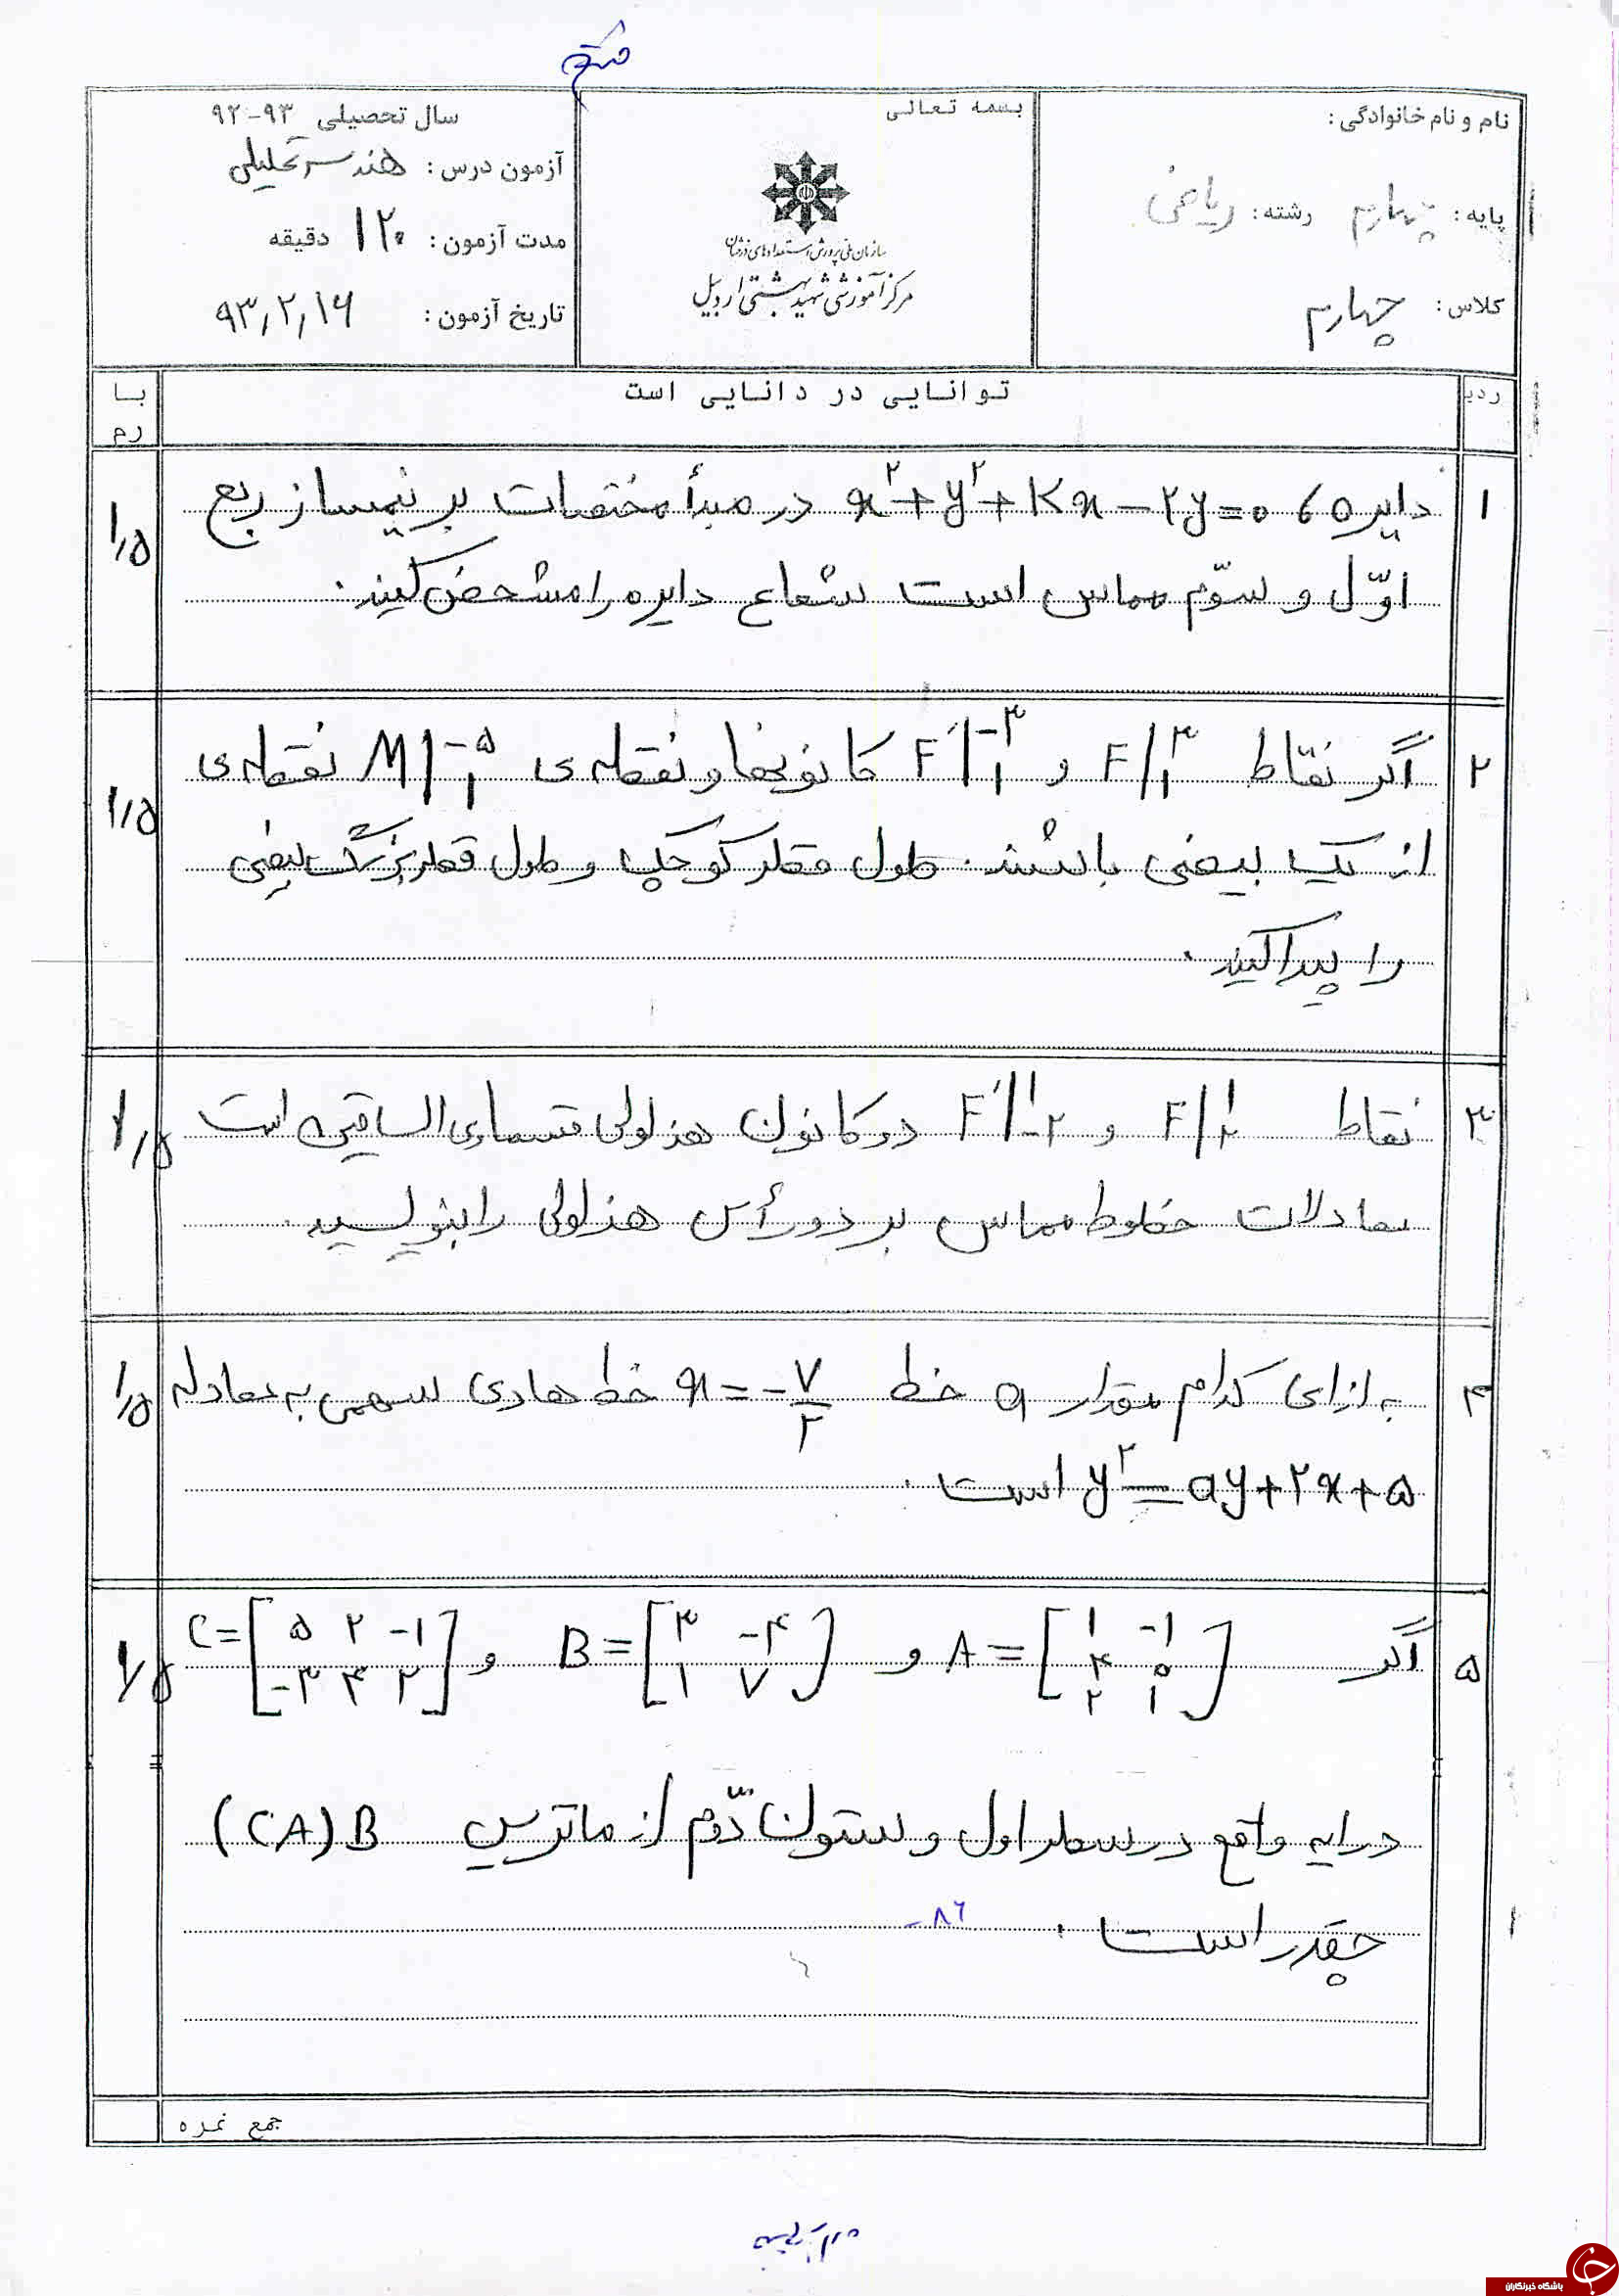 نام و نام خانوادگی:
پایه: چهارم رشته: ریاضی
کلاس: چهارم
بسمه تعالی
سازمان ملی پرورش استعدادهای درخشان
مرکز آموزشی شهید بهشتی اردبیل
سال تحصیلی ۹۳-۹۲
آزمون درس: هندسه تحلیلی
مدت آزمون: ۱۲۰ دقیقه
تاریخ آزمون: ۹۳٫۲٫۱۶
ردیـ توانایی در دانایی است بـا
رم
۱ دایره‌ی x²+y²+Kx-۲y=۰ در مبدأ مختصات بر نیمساز ربع ۱٫۵
اوّل و سوّم مماس است شعاع دایره را مشخص کنید.
۲ اگر نقاط F|۳ ۱ و F'|-۳ ۱ کانونها و نقطه‌ی M|-۵ ۱ نقطه‌ی ۱٫۵
از یک بیضی باشند. طول قطر کوچک و طول قطر بزرگ بیضی
را پیدا کنید.
۳ نقاط F|۱ ۲ و F'|۱ -۲ دو کانون هذلولی متساوی الساقین است ۱٫۵
معادلات خطوط مماس بر دو رأس هذلولی را بنویسید.
۴ به ازای کدام مقدار a خط x=-۷/۲ خط هادی سهمی به معادله ۱٫۵
y²=ay+۲x+۵ است.
۵ اگر A=[۱ -۱ ۴ ۰ ۲ ۱] و B=[۳ -۴ ۱ ۷] و C=[۵ ۲ -۱ -۳ ۴ ۲] ۱٫۵
درایه واقع در سطر اول و ستون دوّم از ماتریس (CA)B
چقدر است. -۸۶
جمع نمره
باشگاه خبرنگاران